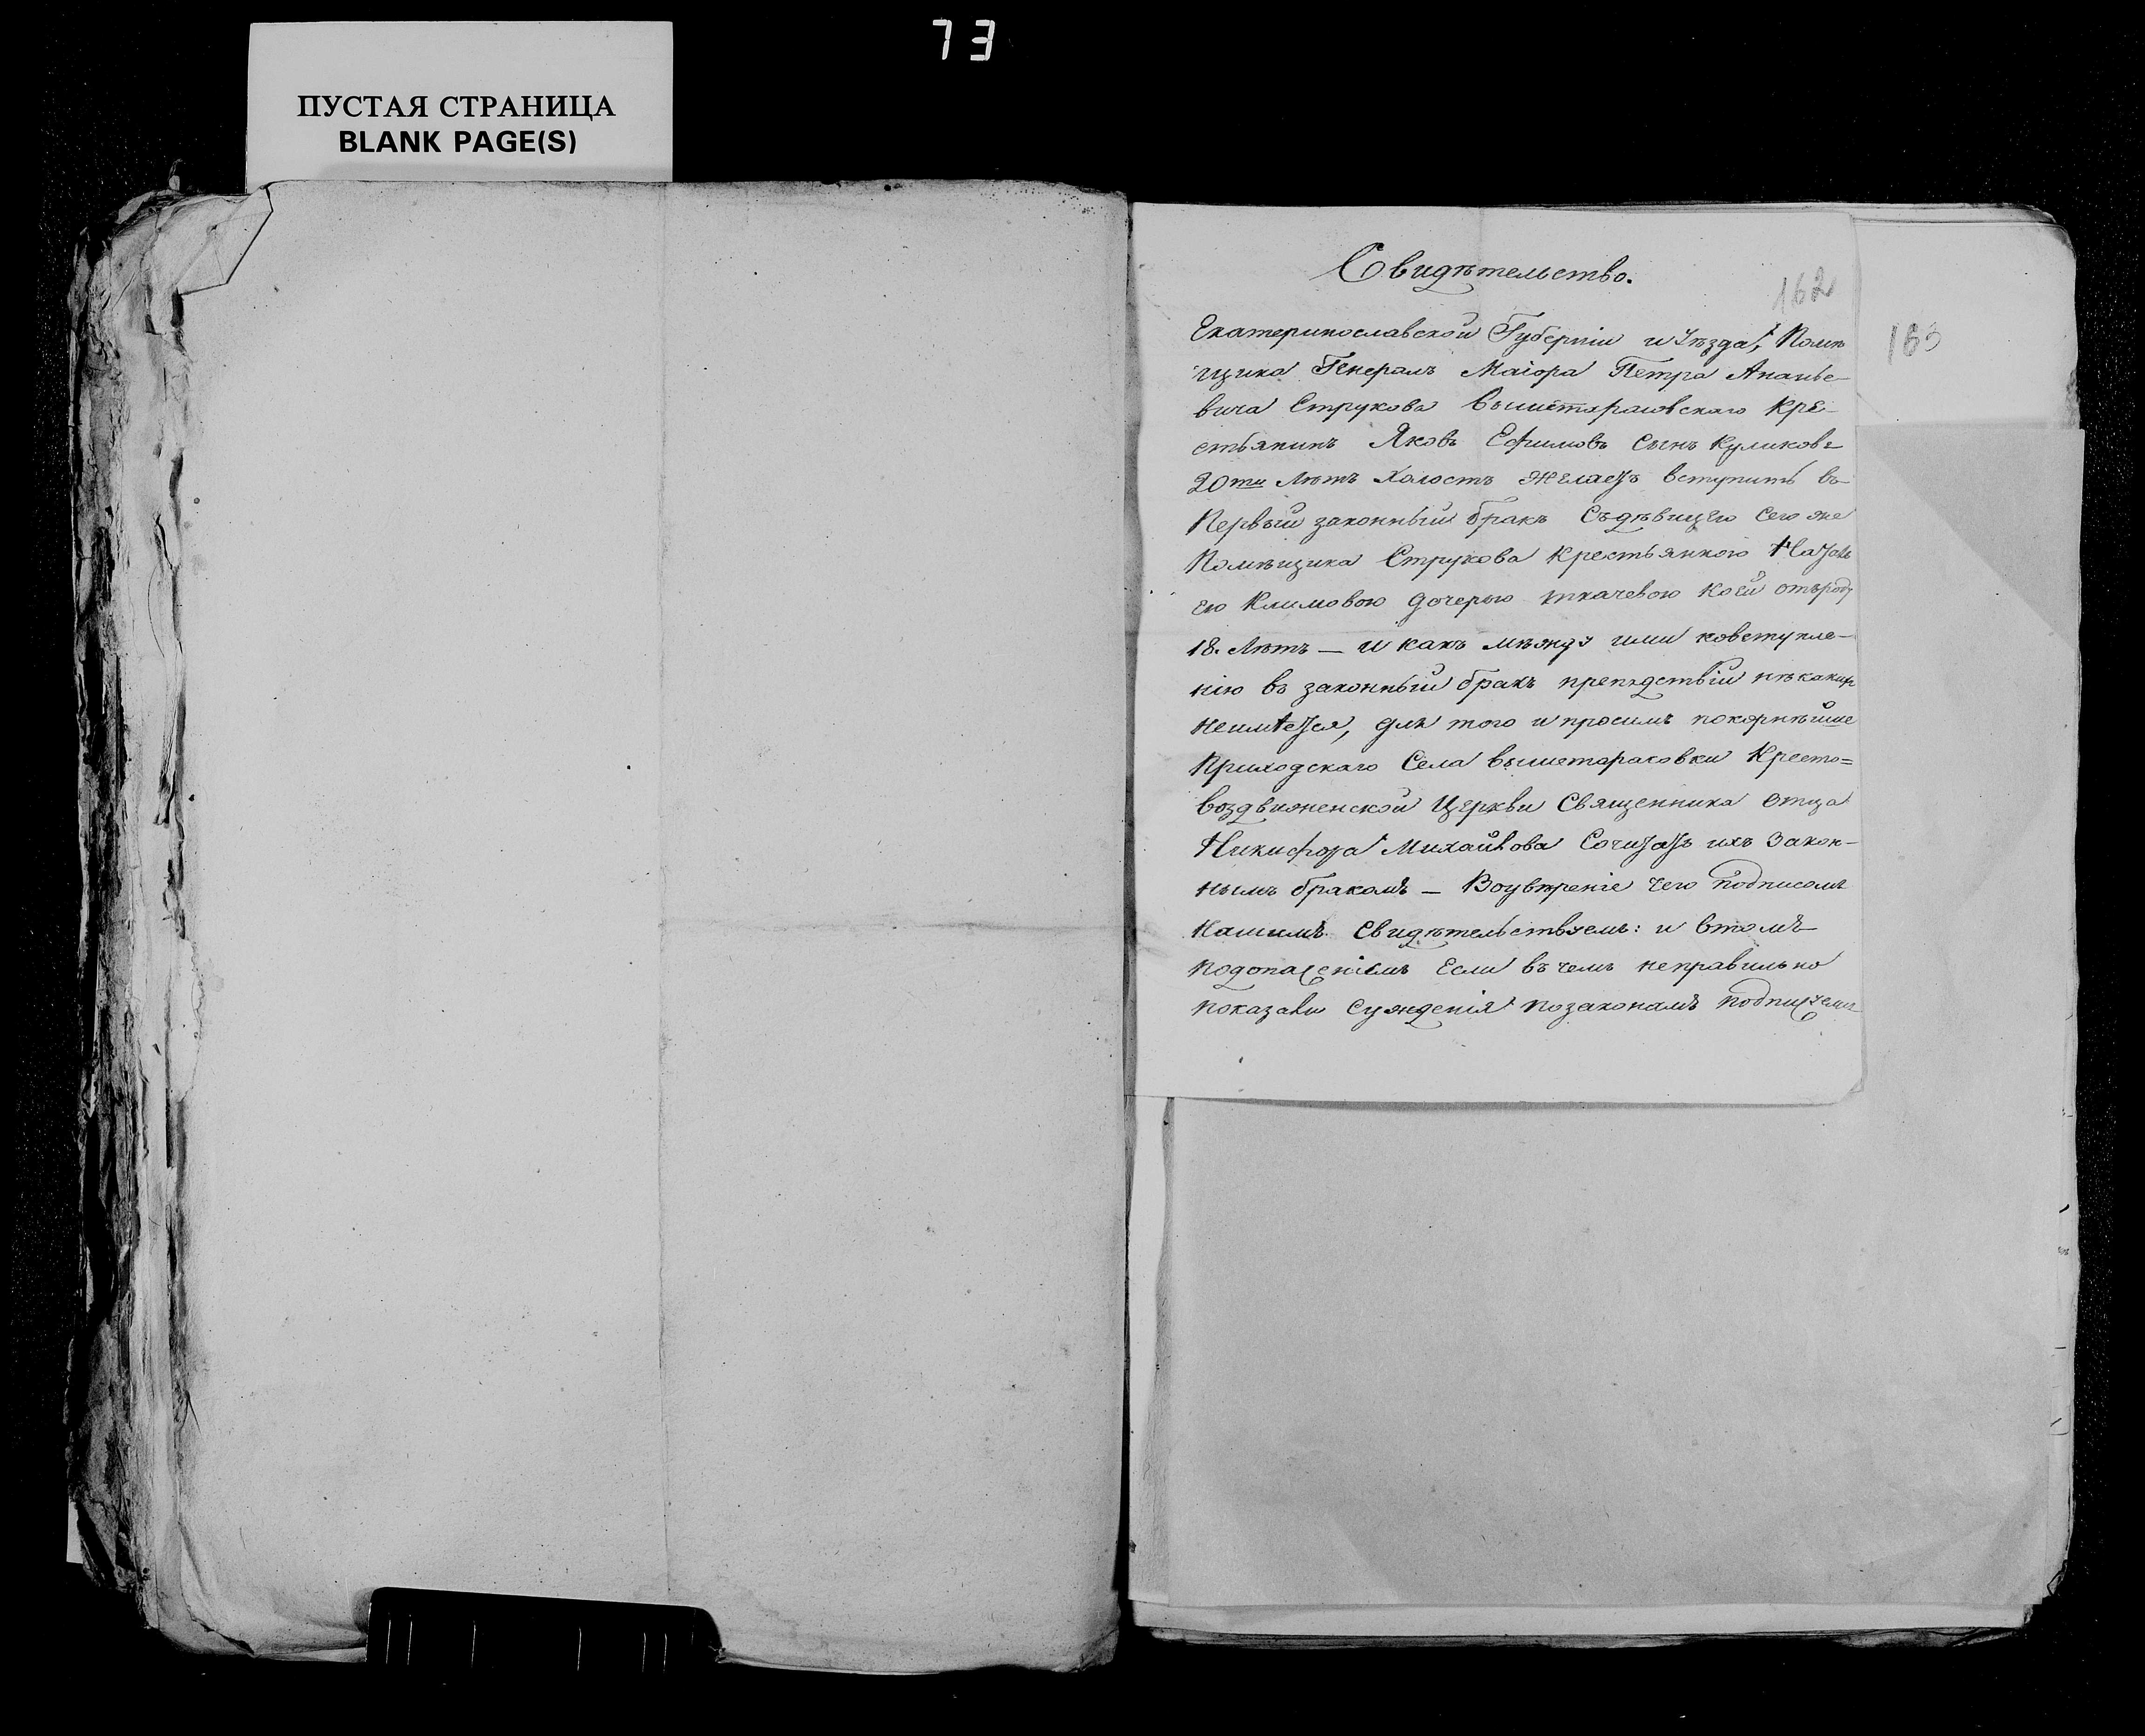 73
ПУСТАЯ СТРАНИЦА
BLANK PAGE(S)
Свидѣтельство.
162
163
Екатеринославской Губерніи и Уѣзда, Помѣ
щика Генералъ Маіора Петра Ананье-
вича Струкова Вышетарасовскаго Кре-
стьянинъ Яковъ Ефимовъ Сынъ Куликовъ=
20ти Лѣтъ Холостъ Желаетъ вступить въ
Первый законный бракъ Съдѣвицею Сего же
Помѣщика Струкова Крестьянкою Натал
ею Климовою дочерью ткачевою коей отъроду
18. Лѣтъ — и какъ мѣжду ими ковступле-
нію въ законный бракъ препядствій нѣкакихъ
неимѣется, длѣ того и просимъ покорнѣйше
Приходскаго Села вышетарасовки Кресто=
воздвиженской Церкви Священника Отца
Никифора Михайлова Сочитать ихъ Закон-
нымъ бракомъ — Воувѣреніе чего подписомъ
нашимъ Свидѣтельствуемъ: и втомъ
подопасеніемъ Если въчемъ неправильно
показали Сужденія позаконамъ подлежимъ